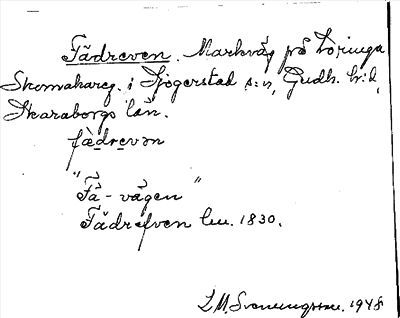 Fädreven. Markväg på Toringa
Skomakareg. i Högerstad s:n, Gudh. h:d,
Skaraborgs län.
fädrevən
"Få-vägen"
Fädrefven lm. 1830.
Z.M. Svenungsson. 1948